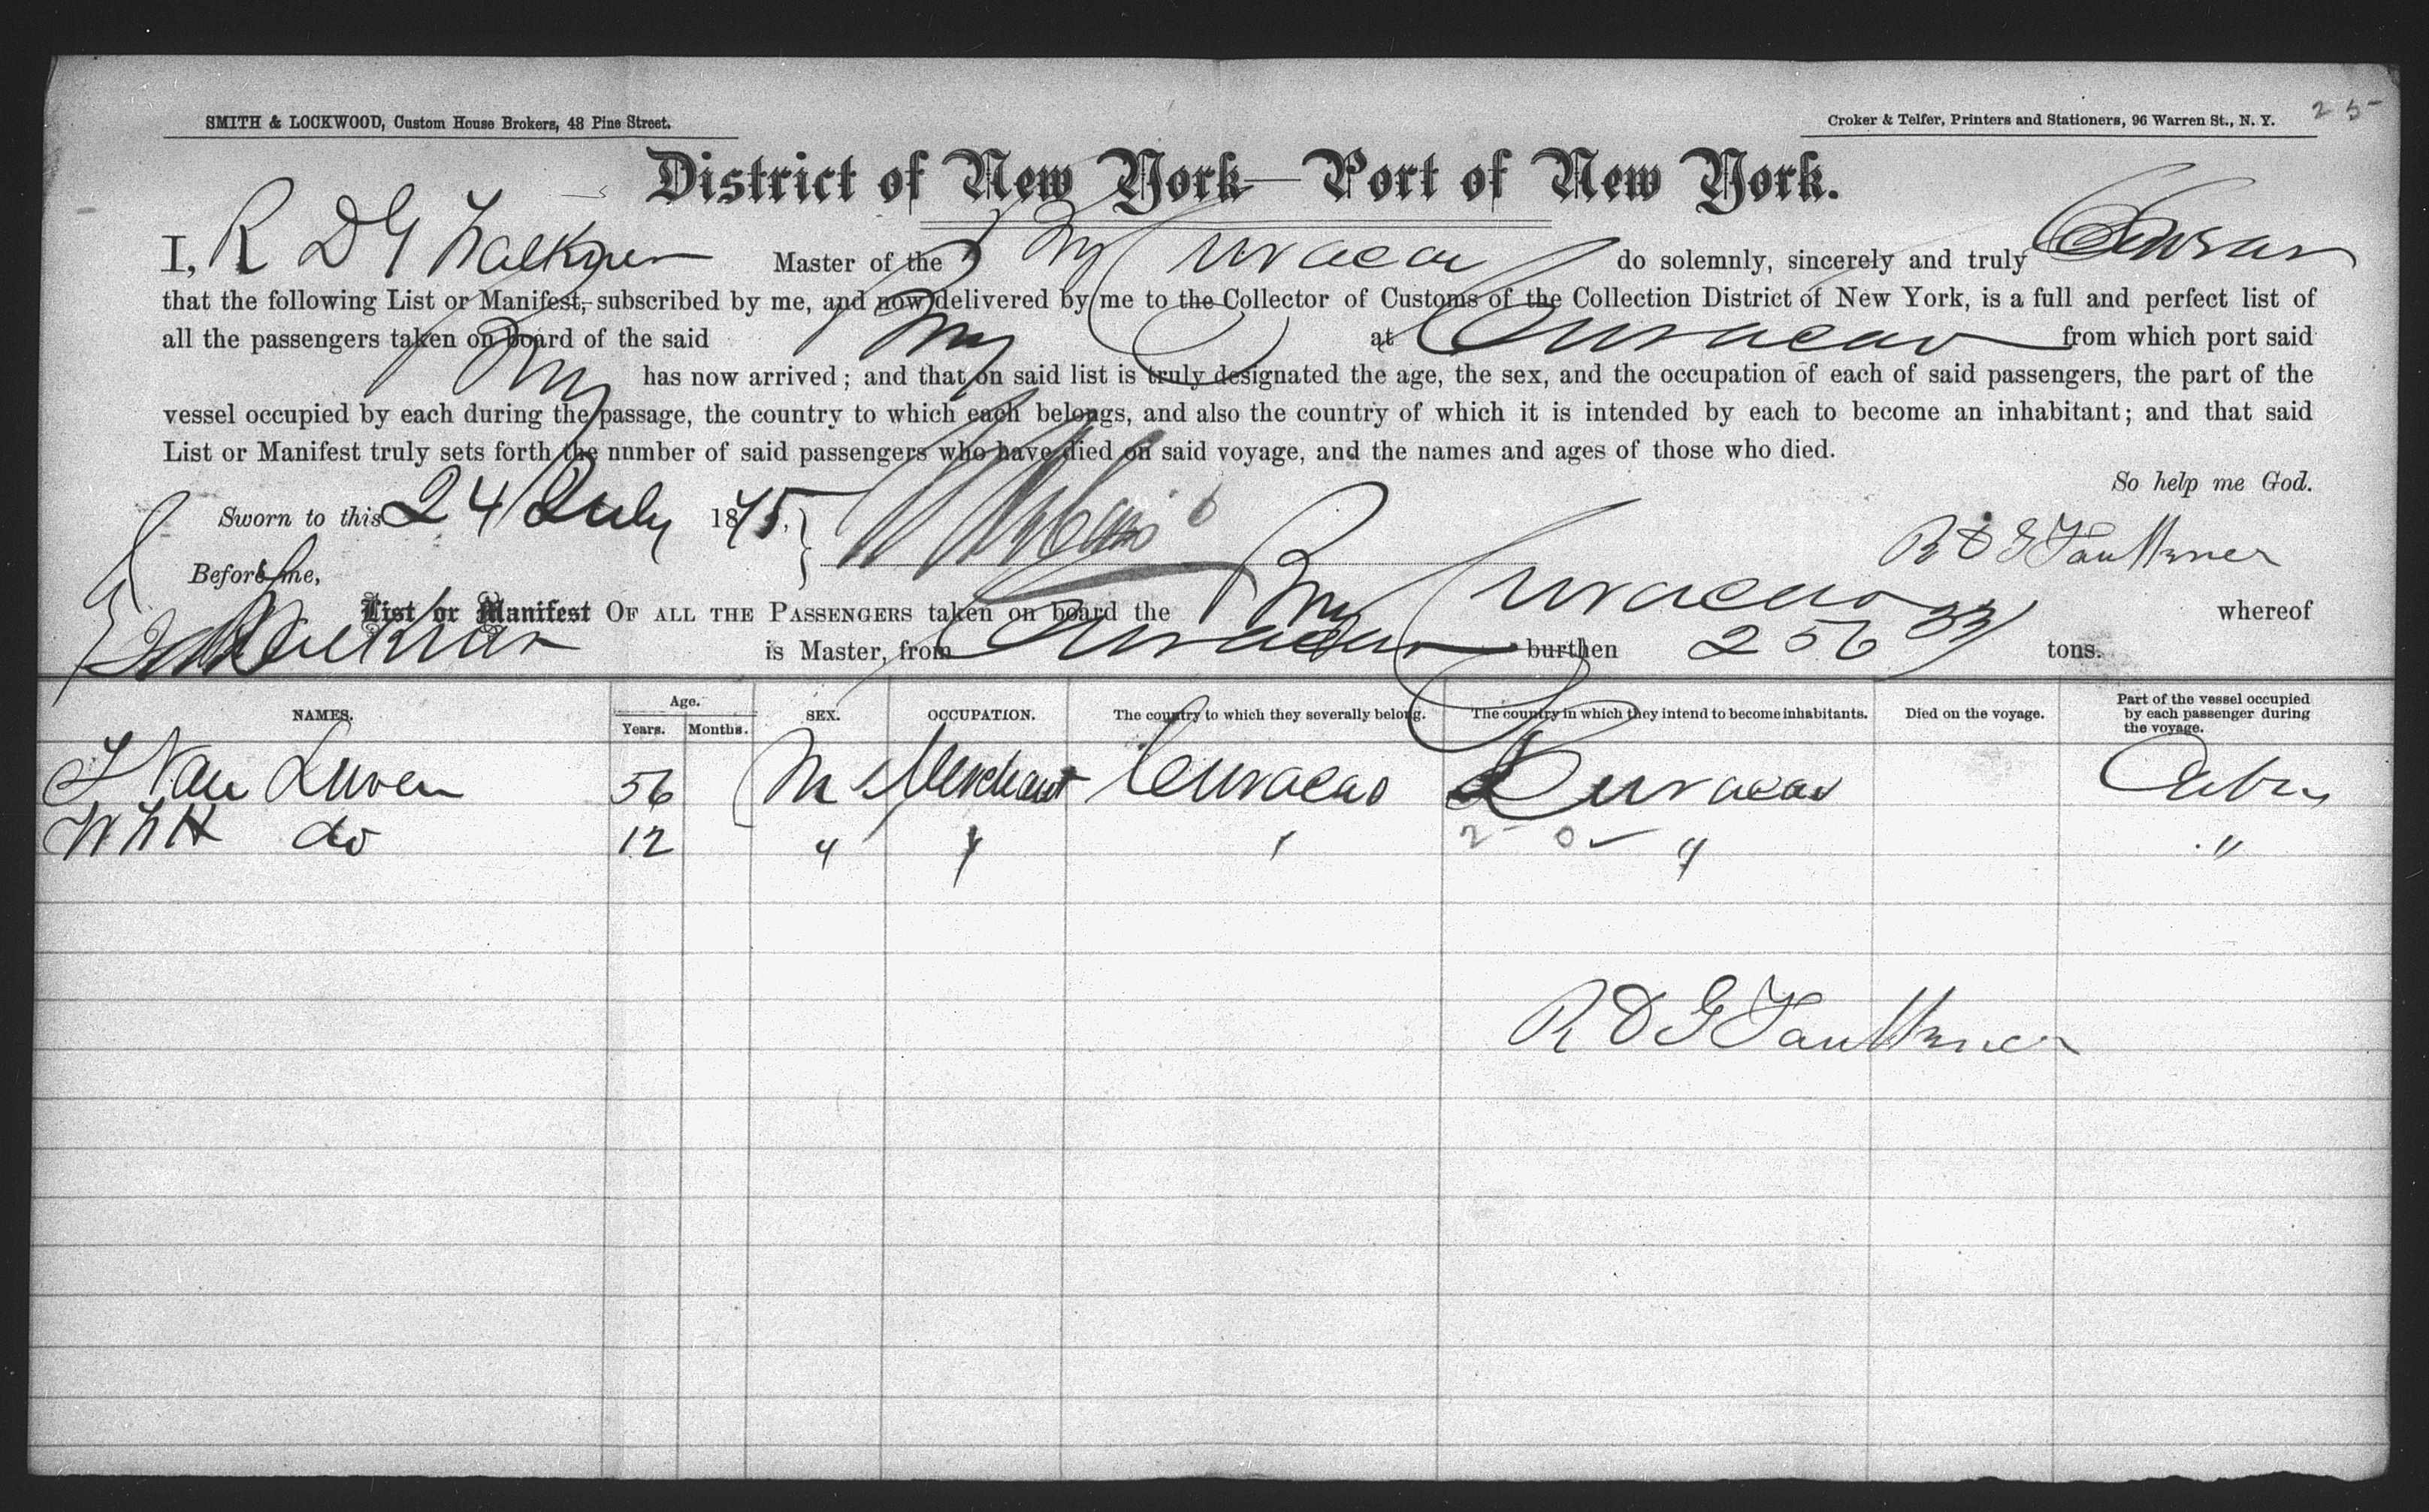 25
SMITH & LOCKWOOD, Custom House Brokers, 48 Pine Street.
Croker & Telfer, Printers and Stationers, 96 Warren St., N. Y.
District of New York—Port of New York.
I, R D G Master of the Curacao do solemnly, sincerely and truly Swear
that the following List or Manifest, subscribed by me, and now delivered by me to the Collector of Customs of the Collection District of New York, is a full and perfect list of
all the passengers taken on board of the said at Curacao from which port said
has now arrived; and that on said list is truly designated the age, the sex, and the occupation of each of said passengers, the part of the
vessel occupied by each during the passage, the country to which each belongs, and also the country of which it is intended by each to become an inhabitant; and that said
List or Manifest truly sets forth the number of said passengers who have died on said voyage, and the names and ages of those who died.
So help me God.
Sworn to this 24 July 1875.
R D G Faulkner
Before me,
List or Manifest OF ALL THE PASSENGERS taken on board the Curacao whereof
is Master, from Curacao burthen 256 33/ tons.
NAMES. Age. Years. Months. SEX. OCCUPATION. The country to which they severally belong. The country in which they intend to become inhabitants. Died on the voyage. Part of the vessel occupied by each passenger during the voyage.
Van 56 M Merchant Curacao Curacao Cabin
do 12 " " " " "
2 - 0 -
R D G Faulkner